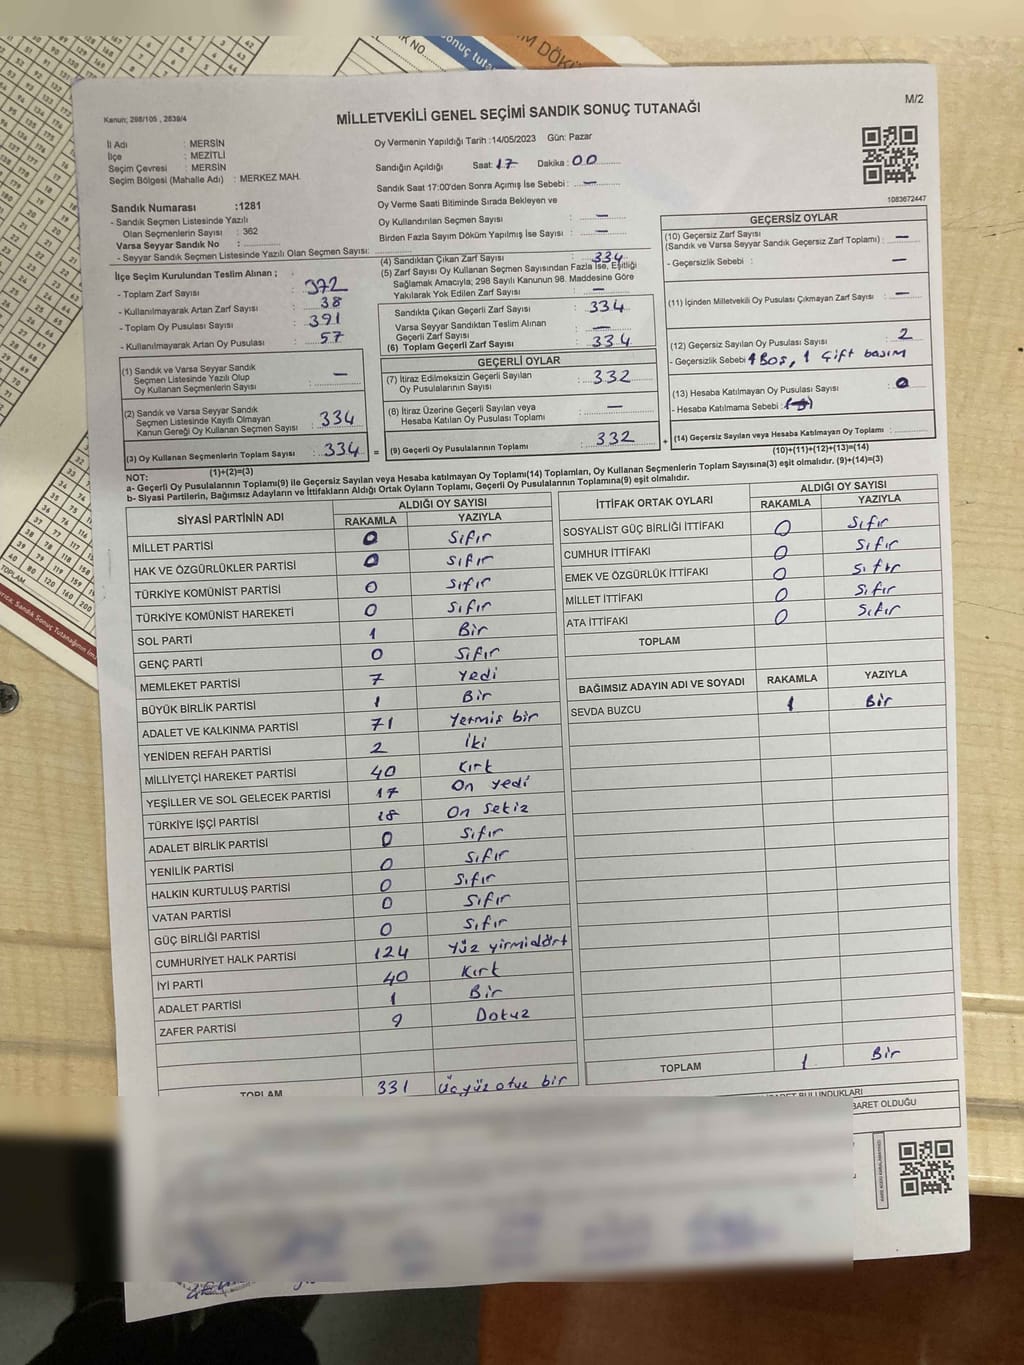 IK NO.
onuç tuta
IM DÖKÜ
M/2
Kanun; 298/105 , 2839/4
MİLLETVEKİLİ GENEL SEÇİMİ SANDIK SONUÇ TUTANAĞI
İl Adı : MERSİN
İlçe : MEZİTLİ
Seçim Çevresi : MERSİN
Seçim Bölgesi (Mahalle Adı) : MERKEZ MAH.
Sandık Numarası :1281
- Sandık Seçmen Listesinde Yazılı
Olan Seçmenlerin Sayısı : 362
Varsa Seyyar Sandık No :
- Seyyar Sandık Seçmen Listesinde Yazılı Olan Seçmen Sayısı:
İlçe Seçim Kurulundan Teslim Alınan ;
- Toplam Zarf Sayısı : 372
- Kullanılmayarak Artan Zarf Sayısı : 38
- Toplam Oy Pusulası Sayısı : 391
- Kullanılmayarak Artan Oy Pusulası : 57
(1) Sandık ve Varsa Seyyar Sandık
Seçmen Listesinde Yazılı Olup
Oy Kullanan Seçmenlerin Sayısı : —
(2) Sandık ve Varsa Seyyar Sandık
Seçmen Listesinde Kayıtlı Olmayan
Kanun Gereği Oy Kullanan Seçmen Sayısı : 334
(3) Oy Kullanan Seçmenlerin Toplam Sayısı : 334 =
(1)+(2)=(3)
Oy Vermenin Yapıldığı Tarih :14/05/2023 Gün: Pazar
Sandığın Açıldığı Saat: 17 Dakika : 00
Sandık Saat 17:00'den Sonra Açılmış İse Sebebi : —
Oy Verme Saati Bitiminde Sırada Bekleyen ve
Oy Kullandırılan Seçmen Sayısı : —
Birden Fazla Sayım Döküm Yapılmış İse Sayısı : —
(4) Sandıktan Çıkan Zarf Sayısı : 334
(5) Zarf Sayısı Oy Kullanan Seçmen Sayısından Fazla İse, Eşitliği
Sağlamak Amacıyla; 298 Sayılı Kanunun 98. Maddesine Göre
Yakılarak Yok Edilen Zarf Sayısı : —
Sandıkta Çıkan Geçerli Zarf Sayısı : 334
Varsa Seyyar Sandıktan Teslim Alınan
Geçerli Zarf Sayısı : —
(6) Toplam Geçerli Zarf Sayısı : 334
GEÇERLİ OYLAR
(7) İtiraz Edilmeksizin Geçerli Sayılan
Oy Pusulalarının Sayısı : 332
(8) İtiraz Üzerine Geçerli Sayılan veya
Hesaba Katılan Oy Pusulası Toplamı : —
(9) Geçerli Oy Pusulalarının Toplamı : 332 +
1083672447
GEÇERSİZ OYLAR
(10) Geçersiz Zarf Sayısı
(Sandık ve Varsa Seyyar Sandık Geçersiz Zarf Toplamı) : —
- Geçersizlik Sebebi : —
(11) İçinden Milletvekili Oy Pusulası Çıkmayan Zarf Sayısı : —
(12) Geçersiz Sayılan Oy Pusulası Sayısı : 2
- Geçersizlik Sebebi 1 Boş, 1 Çift basım
(13) Hesaba Katılmayan Oy Pusulası Sayısı : 0
- Hesaba Katılmama Sebebi :
(14) Geçersiz Sayılan veya Hesaba Katılmayan Oy Toplamı :
(10)+(11)+(12)+(13)=(14)
NOT:
a- Geçerli Oy Pusulalarının Toplamı(9) ile Geçersiz Sayılan veya Hesaba katılmayan Oy Toplamı(14) Toplamları, Oy Kullanan Seçmenlerin Toplam Sayısına(3) eşit olmalıdır. (9)+(14)=(3)
b- Siyasi Partilerin, Bağımsız Adayların ve İttifakların Aldığı Ortak Oyların Toplamı, Geçerli Oy Pusulalarının Toplamına(9) eşit olmalıdır.
SİYASİ PARTİNİN ADI ALDIĞI OY SAYISI
RAKAMLA YAZIYLA
MİLLET PARTİSİ 0 Sıfır
HAK VE ÖZGÜRLÜKLER PARTİSİ 0 Sıfır
TÜRKİYE KOMÜNİST PARTİSİ 0 Sıfır
TÜRKİYE KOMÜNİST HAREKETİ 0 Sıfır
SOL PARTİ 1 Bir
GENÇ PARTİ 0 Sıfır
MEMLEKET PARTİSİ 7 Yedi
BÜYÜK BİRLİK PARTİSİ 1 Bir
ADALET VE KALKINMA PARTİSİ 71 Yetmiş bir
YENİDEN REFAH PARTİSİ 2 İki
MİLLİYETÇİ HAREKET PARTİSİ 40 Kırk
YEŞİLLER VE SOL GELECEK PARTİSİ 17 On yedi
TÜRKİYE İŞÇİ PARTİSİ 18 On sekiz
ADALET BİRLİK PARTİSİ 0 Sıfır
YENİLİK PARTİSİ 0 Sıfır
HALKIN KURTULUŞ PARTİSİ 0 Sıfır
VATAN PARTİSİ 0 Sıfır
GÜÇ BİRLİĞİ PARTİSİ 0 Sıfır
CUMHURİYET HALK PARTİSİ 124 Yüz yirmidört
İYİ PARTİ 40 Kırk
ADALET PARTİSİ 1 Bir
ZAFER PARTİSİ 9 Dokuz
TOPLAM 331 Üçyüz otuz bir
İTTİFAK ORTAK OYLARI ALDIĞI OY SAYISI
RAKAMLA YAZIYLA
SOSYALİST GÜÇ BİRLİĞİ İTTİFAKI 0 Sıfır
CUMHUR İTTİFAKI 0 Sıfır
EMEK VE ÖZGÜRLÜK İTTİFAKI 0 Sıfır
MİLLET İTTİFAKI 0 Sıfır
ATA İTTİFAKI 0 Sıfır
TOPLAM
BAĞIMSIZ ADAYIN ADI VE SOYADI RAKAMLA YAZIYLA
SEVDA BUZCU 1 Bir
TOPLAM 1 Bir
BULUNDUKLARI
BARET OLDUĞU